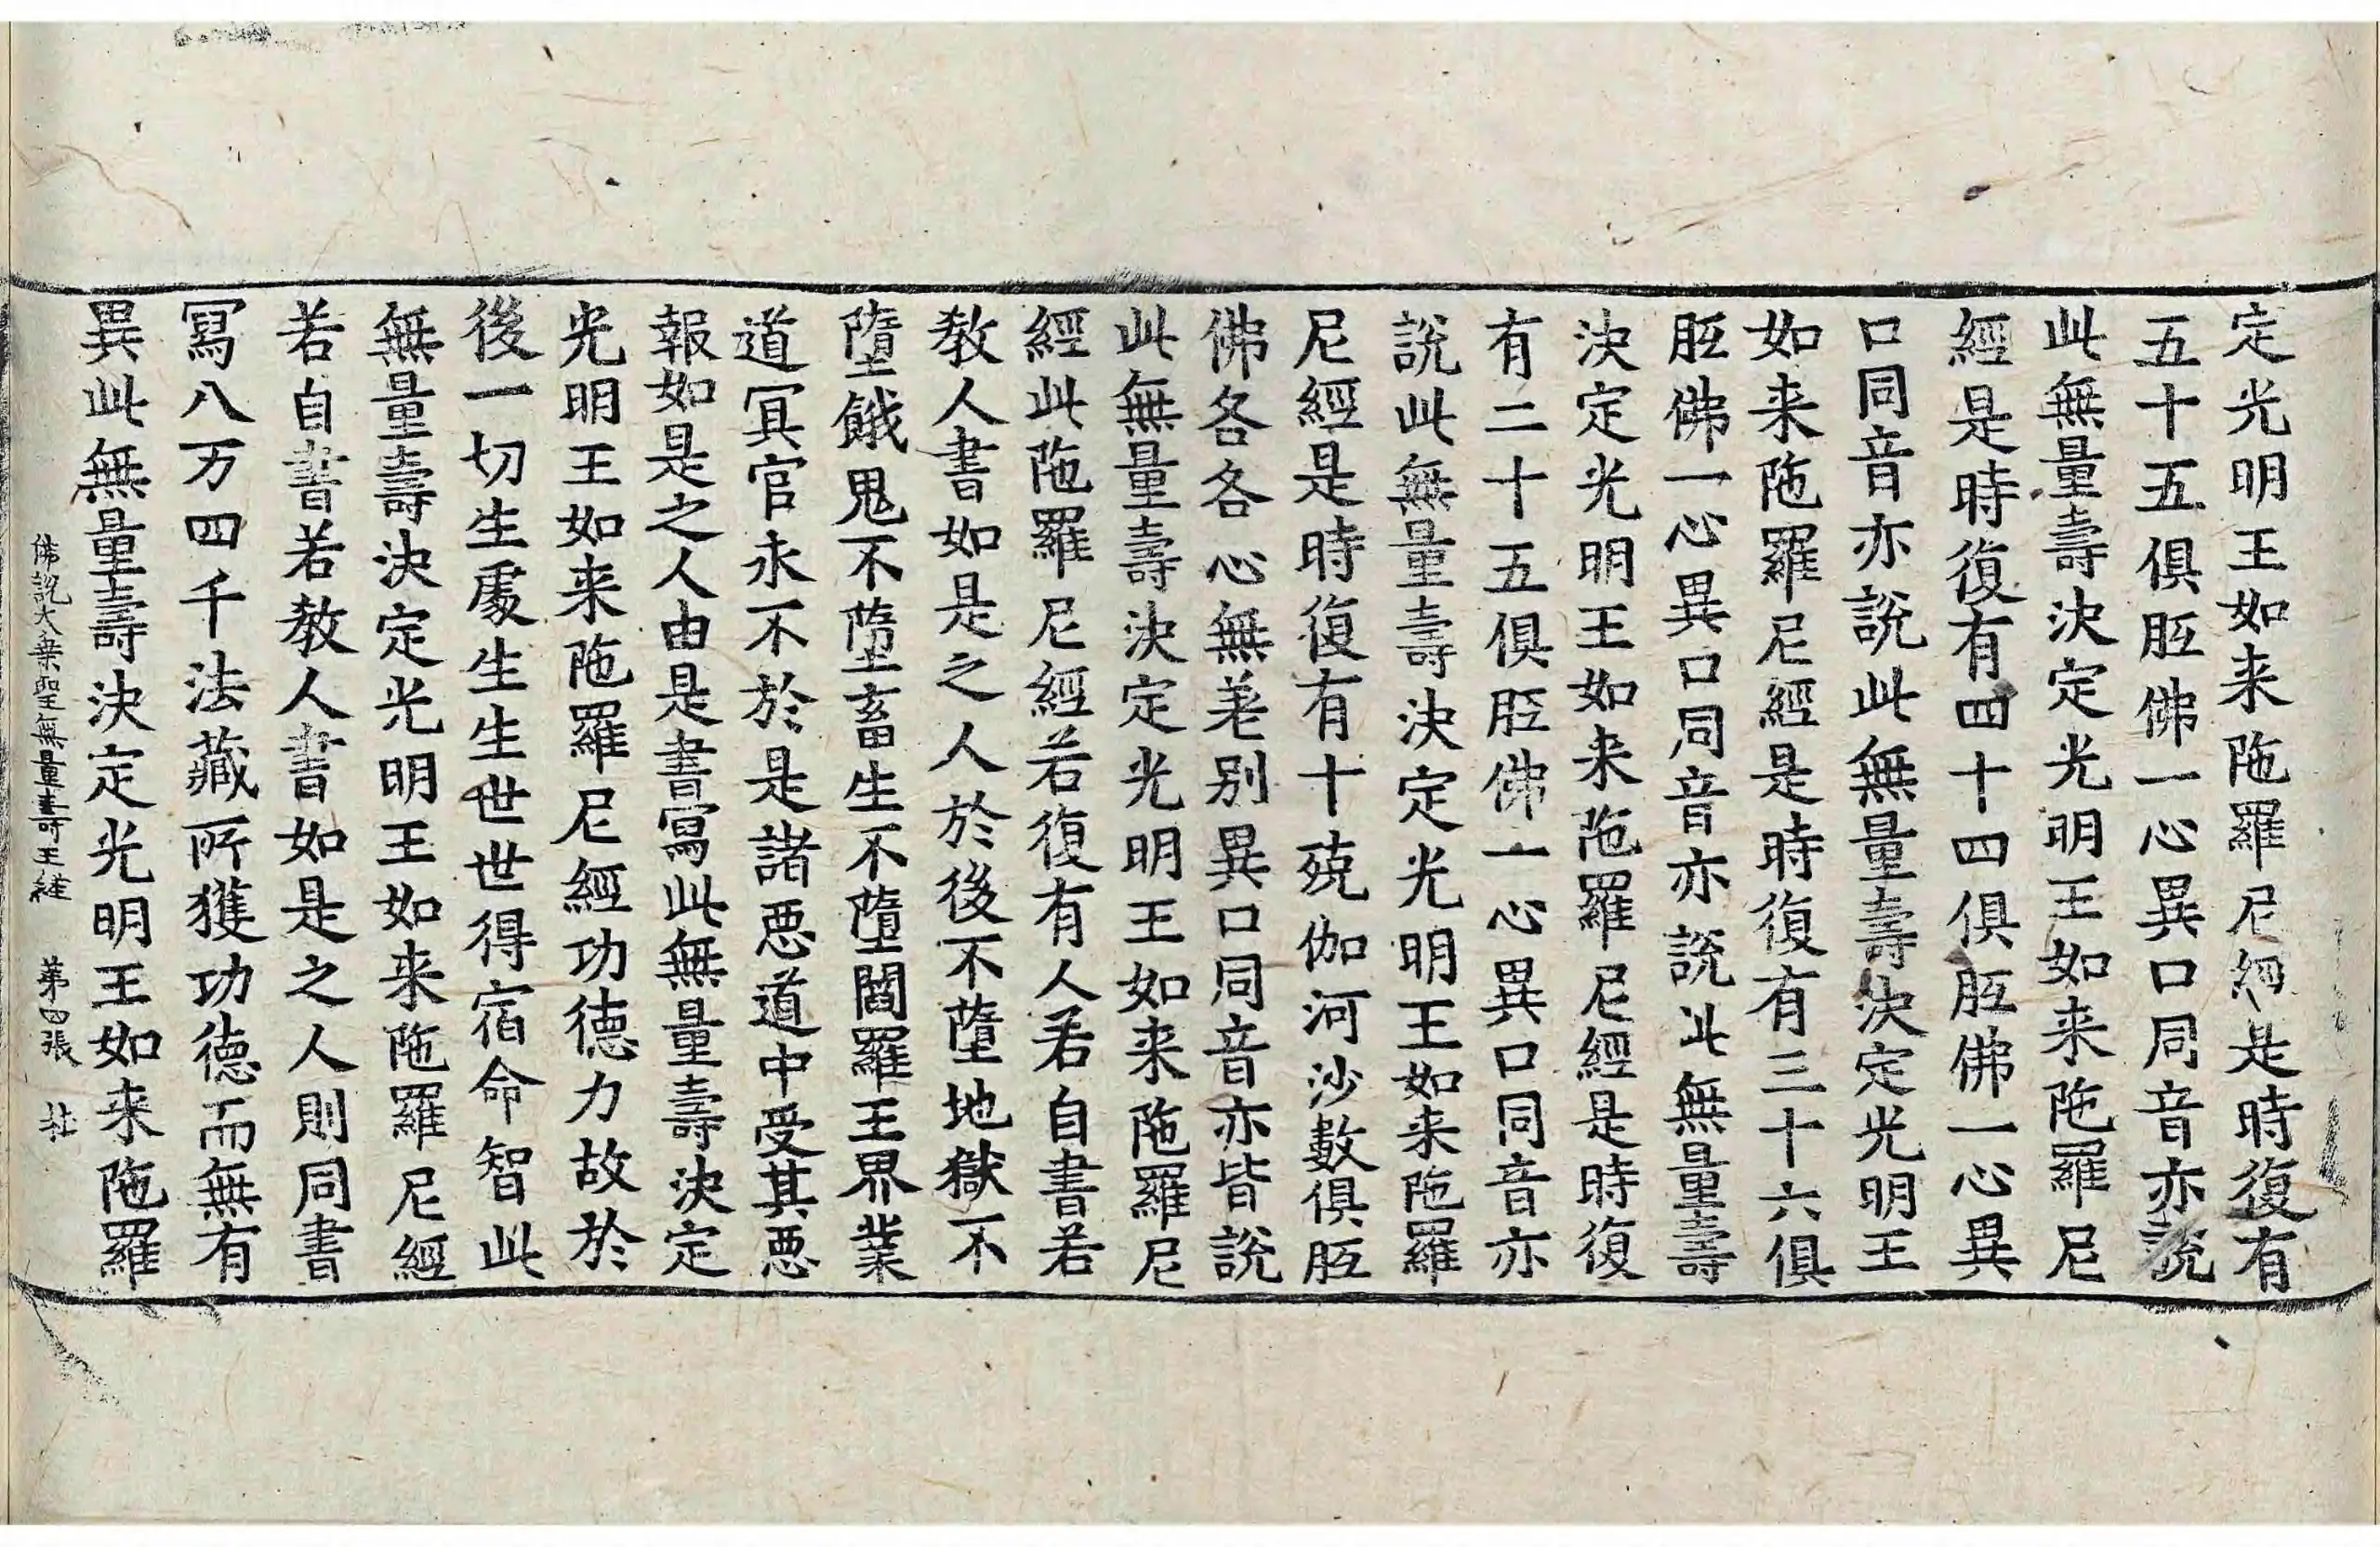 定光明王如来陁羅尼經是時復有
五十五俱胝佛一心異口同音亦說
此無量壽決定光明王如来陁羅尼
經是時復有四十四俱胝佛一心異
口同音亦說此無量壽決定光明王
如来陁羅尼經是時復有三十六俱
胝佛一心異口同音亦說此無量壽
決定光明王如来陁羅尼經是時復
有二十五俱胝佛一心異口同音亦
說此無量壽決定光明王如来陁羅
尼經是時復有十殑伽河沙數俱胝
佛各各心無差别異口同音亦皆說
此無量壽決定光明王如来陁羅尼
經此陁羅尼經若復有人若自書若
教人書如是之人於後不墮地獄不
墮餓鬼不墮畜生不墮閻羅王界業
道冥官永不於是諸惡道中受其惡
報如是之人由是書寫此無量壽決定
光明王如来陁羅尼經功德力故於
後一切生處生生世世得宿命智此
無量壽決定光明王如来陁羅尼經
若自書若教人書如是之人則同書
寫八万四千法藏所獲功德而無有
異此無量壽決定光明王如来陁羅
佛說大乗聖無量壽王経 第四張